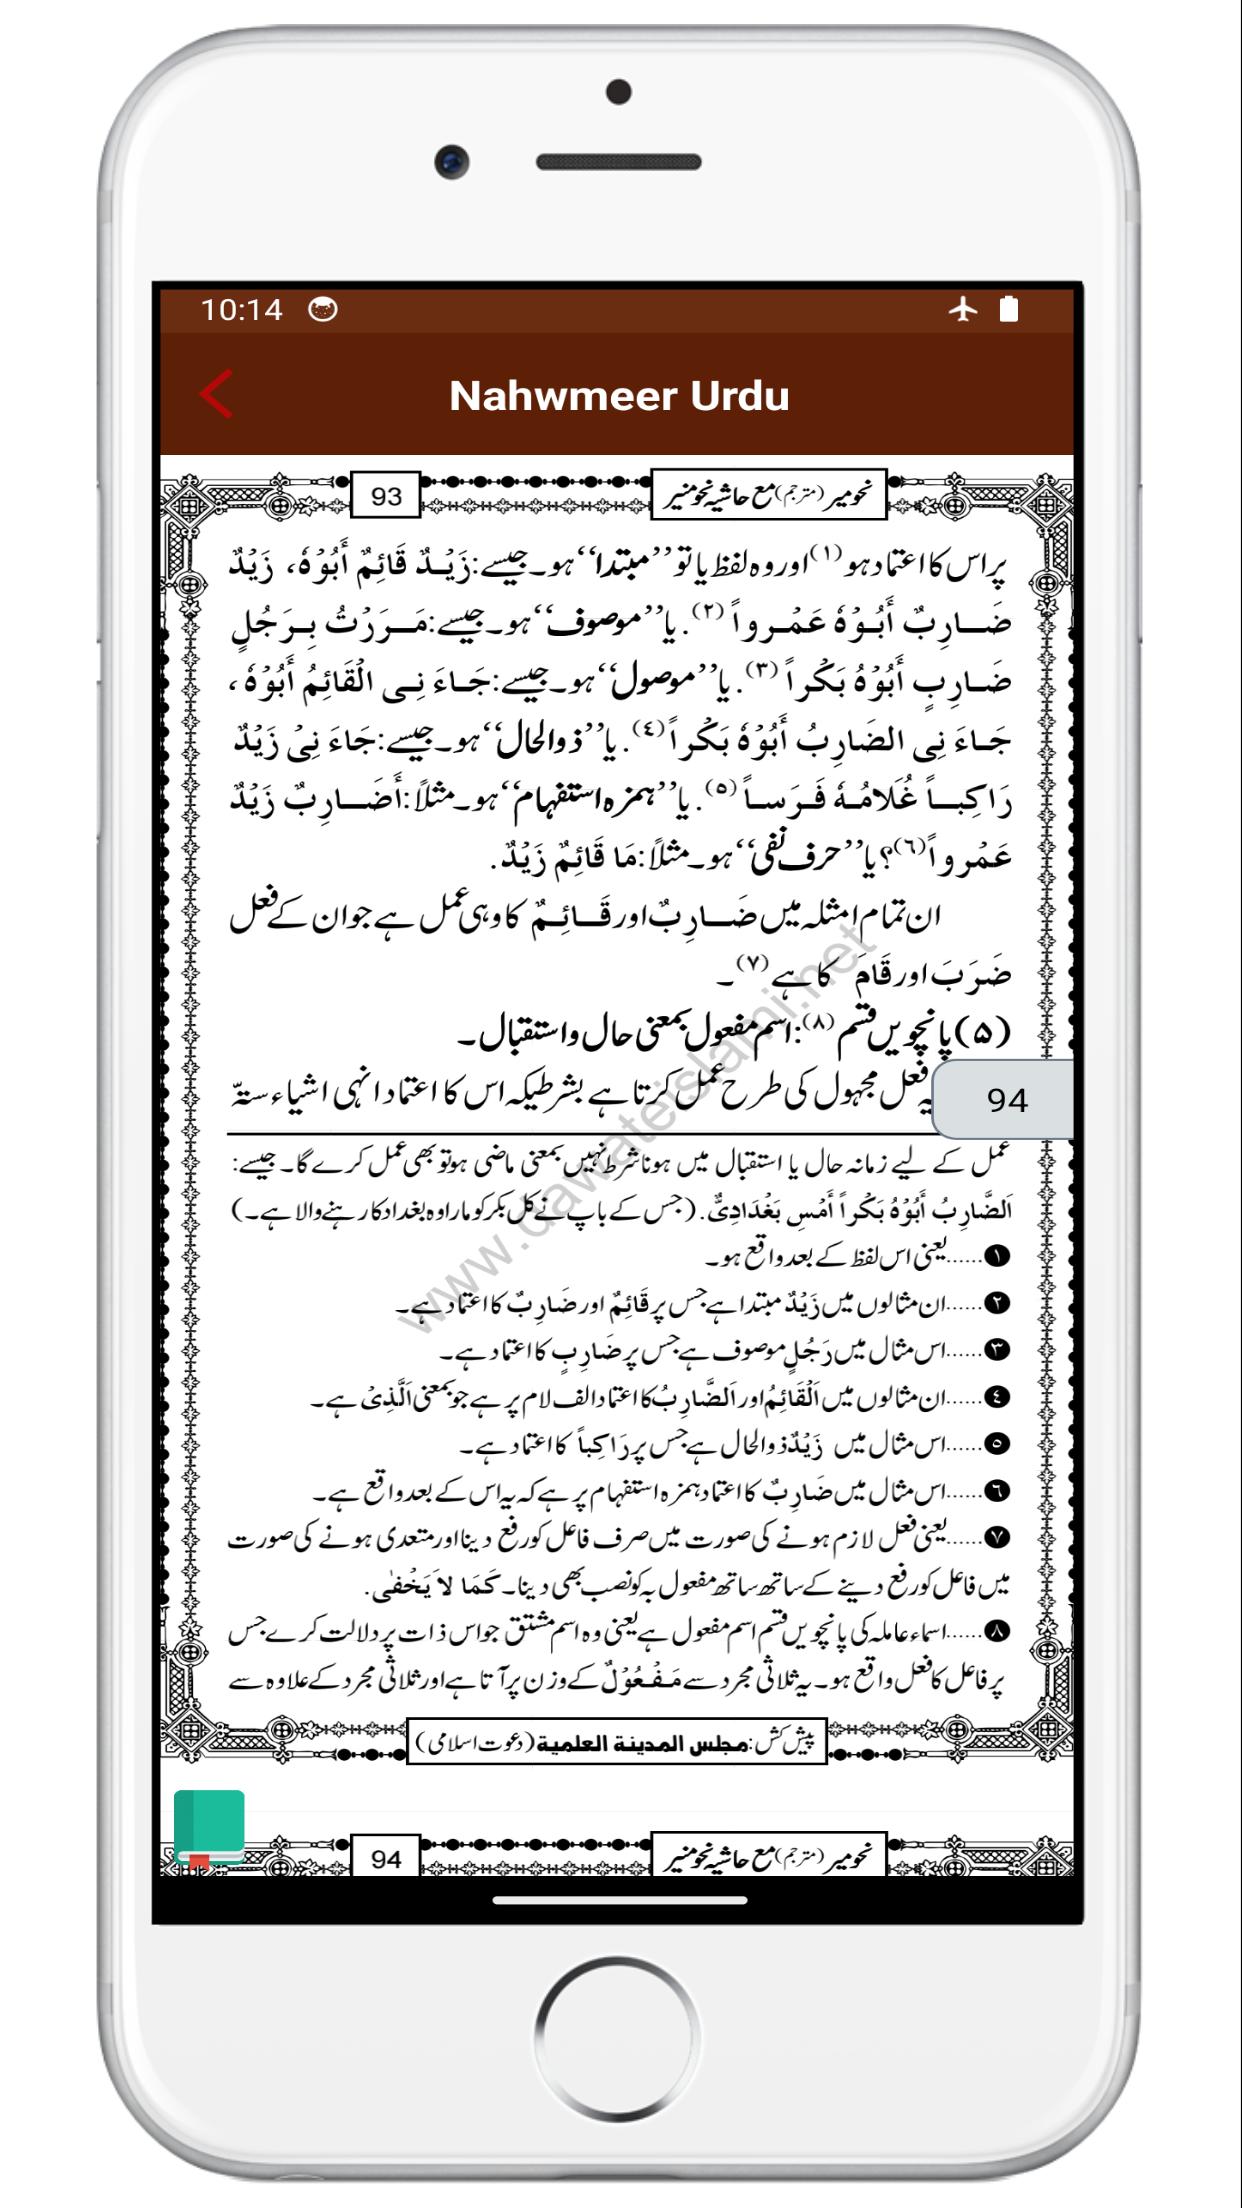 10:14
Nahwmeer Urdu
نحومیر (مترجم) مع حاشیہ نحومنیر 93
پر اس کا اعتماد ہو (١) اور وہ لفظ یا تو ’’مبتدا‘‘ ہو۔ جیسے: زَيْدٌ قَائِمٌ أَبُوْهُ، زَيْدٌ
ضَارِبٌ أَبُوْهُ عَمْرواً (٢). یا ’’موصوف‘‘ ہو۔ جیسے: مَرَرْتُ بِرَجُلٍ
ضَارِبٍ أَبُوْهُ بَكْراً (٣). یا ’’موصول‘‘ ہو۔ جیسے: جَاءَ نِي الْقَائِمُ أَبُوْهُ،
جَاءَ نِي الضَارِبُ أَبُوْهُ بَكْراً (٤). یا ’’ذوالحال‘‘ ہو۔ جیسے: جَاءَ نِيْ زَيْدٌ
رَاكِباً غُلَامُهٗ فَرَساً (٥). یا ’’ہمزہ استفہام‘‘ ہو۔ مثلاً: أَضَارِبٌ زَيْدٌ
عَمْرواً (٦)؟ یا ’’حرف نفی‘‘ ہو۔ مثلاً: مَا قَائِمٌ زَيْدٌ.
ان تمام امثلہ میں ضَارِبٌ اور قَائِمٌ کا وہی عمل ہے جو ان کے فعل
ضَرَبَ اور قَامَ کا ہے (٧)۔
(۵) پانچویں قسم (٨): اسم مفعول بمعنی حال و استقبال۔
یہ فعل مجہول کی طرح عمل کرتا ہے بشرطیکہ اس کا اعتماد انہی اشیاء ستّہ
94
عمل کے لیے زمانہ حال یا استقبال میں ہونا شرط نہیں بمعنی ماضی ہو تو بھی عمل کرے گا۔ جیسے:
اَلضَّارِبُ أَبُوْهُ بَكْراً أَمْسِ بَغْدَادِيٌّ. (جس کے باپ نے کل بکر کو مارا وہ بغداد کا رہنے والا ہے۔)
١......یعنی اس لفظ کے بعد واقع ہو۔
٢......ان مثالوں میں زَيْدٌ مبتدا ہے جس پر قَائِمٌ اور ضَارِبٌ کا اعتماد ہے۔
٣......اس مثال میں رَجُلٍ موصوف ہے جس پر ضَارِبٍ کا اعتماد ہے۔
٤......ان مثالوں میں اَلْقَائِمُ اور اَلضَّارِبُ کا اعتماد الف لام پر ہے جو بمعنی اَلَّذِيْ ہے۔
٥......اس مثال میں زَيْدٌ ذوالحال ہے جس پر رَاكِباً کا اعتماد ہے۔
٦......اس مثال میں ضَارِبٌ کا اعتماد ہمزہ استفہام پر ہے کہ یہ اس کے بعد واقع ہے۔
٧......یعنی فعل لازم ہونے کی صورت میں صرف فاعل کو رفع دینا اور متعدی ہونے کی صورت
میں فاعل کو رفع دینے کے ساتھ ساتھ مفعول بہ کو نصب بھی دینا۔ كَمَا لاَ يَخْفٰى.
٨......اسماء عاملہ کی پانچویں قسم اسم مفعول ہے یعنی وہ اسم مشتق جو اس ذات پر دلالت کرے جس
پر فاعل کا فعل واقع ہو۔ یہ ثلاثی مجرد سے مَفْعُوْلٌ کے وزن پر آتا ہے اور ثلاثی مجرد کے علاوہ سے
www.dawateislami.net
پیش کش: مجلس المدينة العلمية (دعوت اسلامی)
نحومیر (مترجم) مع حاشیہ نحومنیر 94